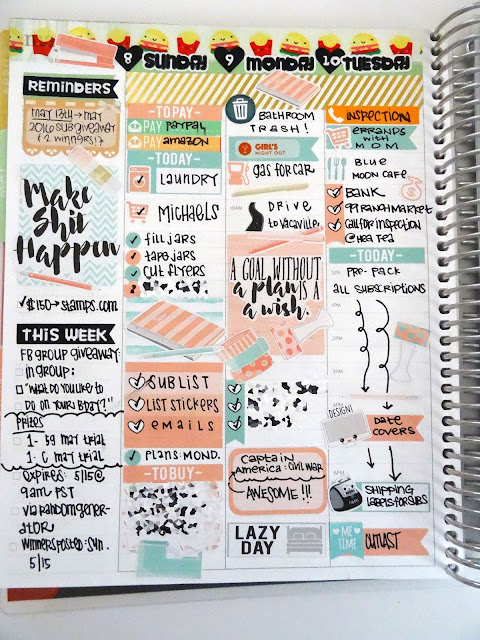 REMINDERS
MAY 13th → MAY
2016 SUB GIVEAWAY
(2 WINNERS!)
Make
Shit
Happen
✓$150→stamps.com
THIS WEEK
FB GROUP GIVEAWAY:
IN GROUP:
"WHAT DO YOU LIKE TO
DO ON YOUR BDAY?"
PRIZES
MAY TRIAL
1- C MAY TRIAL
EXPIRES: 5/15@
9am PST
VIA RANDOM GENER-
ATOR
WINNERS POSTED: SUN.
5/15
8 SUNDAY
-TO PAY-
PAY PAYPAL
PAY amazon
-TODAY-
LAUNDRY
MICHAELS
FILL JARS
TAPE JARS
CUT FLYERS
SUB LIST
LIST STICKERS
EMAILS
PLANS: MOND.
-TO BUY-
9 MONDAY
BATHROOM
TRASH!
GIRL'S
NIGHT OUT
GAS FOR CAR
10AM
DRIVE
TO VACAVILLE
A GOAL WITHOUT
a plan IS A
a wish.
CAPTAIN
AMERICA: CIVIL WAR
AWESOME!!!
LAZY
DAY
10 TUESDAY
INSPECTION
ERRANDS
WITH
MOM
BLUE
MOON CAFE
BANK
99 RANCH MARKET
CALL FOR INSPECTION
@HEA TEA
-TODAY-
12PM PRE-PACK
ALL SUBSCRIPTIONS
1PM
2PM
3PM
DESIGN!
DATE
COVERS
5PM
SHIPPING
LABELS FOR SUBS
ME
TIME
OUTLAST